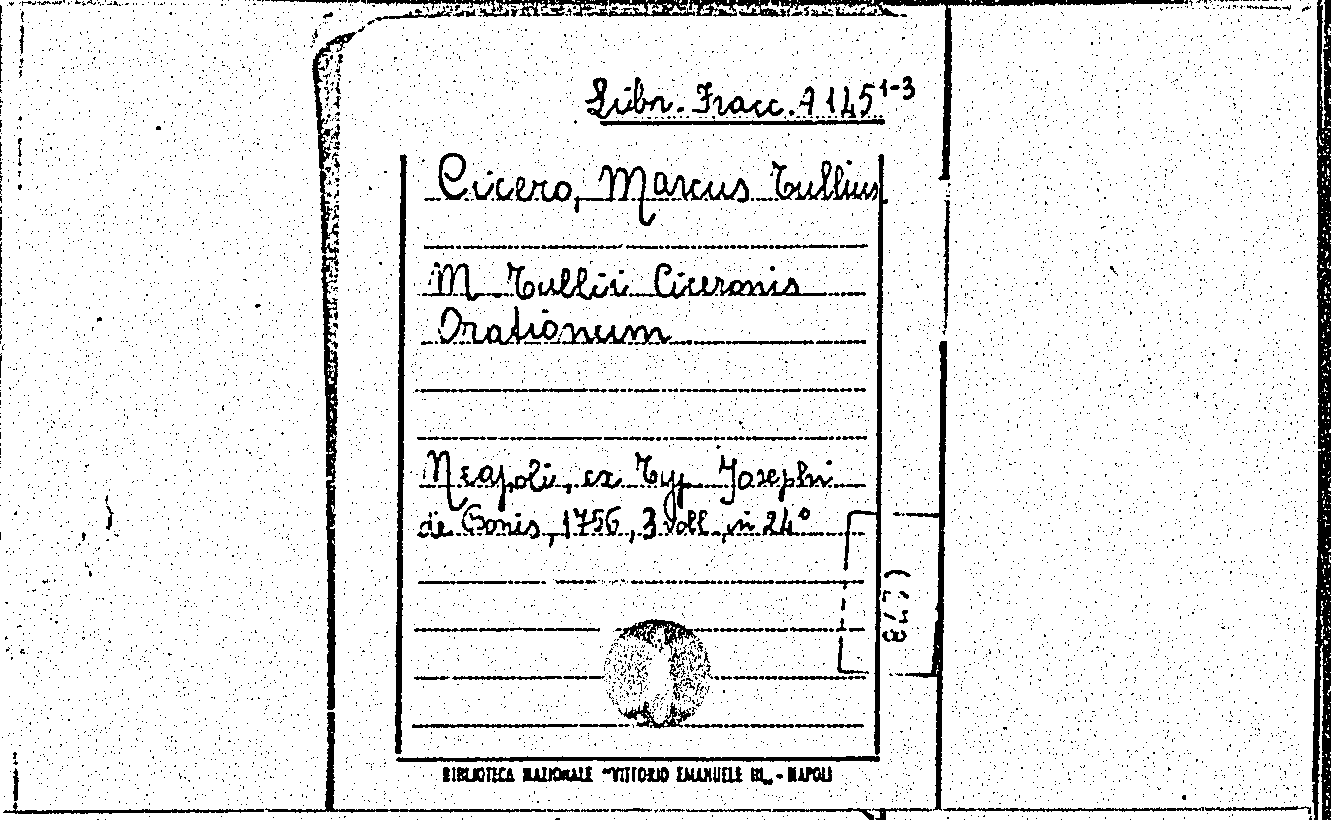 Libr. Fracc. A 145 1-3
Cicero, Marcus Tullius
M Tullii Ciceronis
Orationum
Neapoli, ex Typ Josephi
de Bonis, 1756, 3 voll, in 24°
BIBLIOTECA NAZIONALE "VITTORIO EMANUELE III„ - NAPOLI